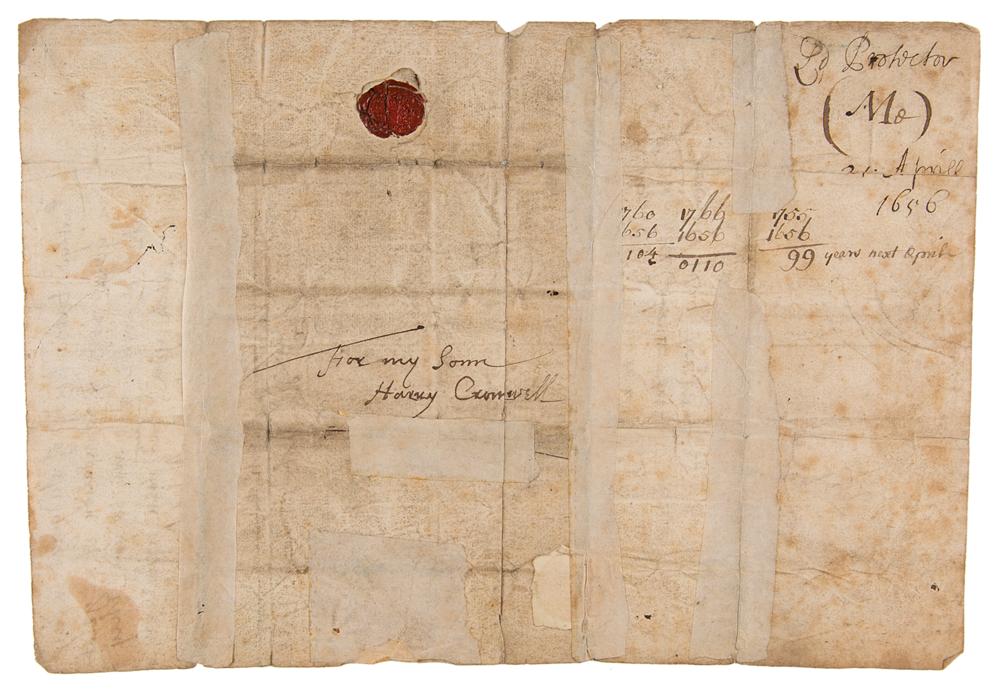 Ld Protector
(Me)
21. Aprill
1656
1760 1766 1755
1656 1656 1656
104 0110 99 years next April
For my Sonn
Harry Cromwell